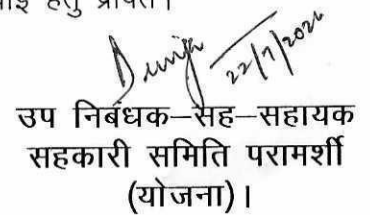 हेतु प्रेषित।
22/7/2026
उप निबंधक–सह–सहायक
सहकारी समिति परामर्शी
(योजना)।